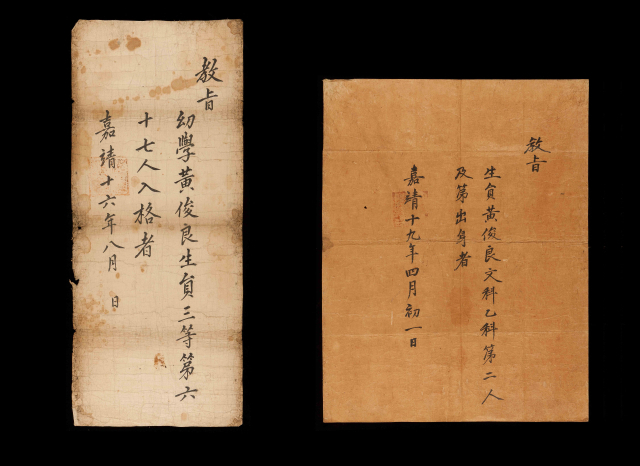 教旨
幼學黃俊良生貟三等第六
十七人入格者
嘉靖十六年八月 日
教旨
生貟黃俊良文科乙科第二人
及第出身者
嘉靖十九年四月初一日